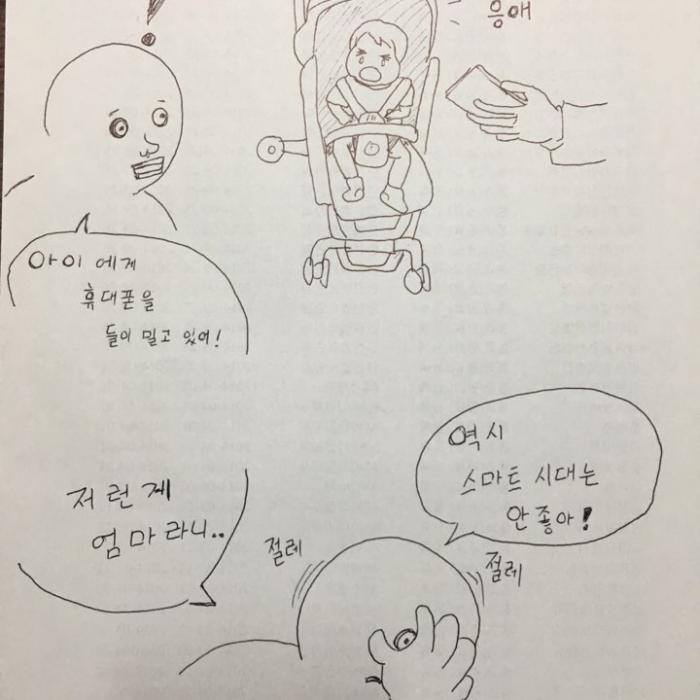 응애
아이 에게
휴대폰을
들이 밀고 있어!
역시
스마트 시대는
안 좋아!
저런게
엄마라니..
절레
절레